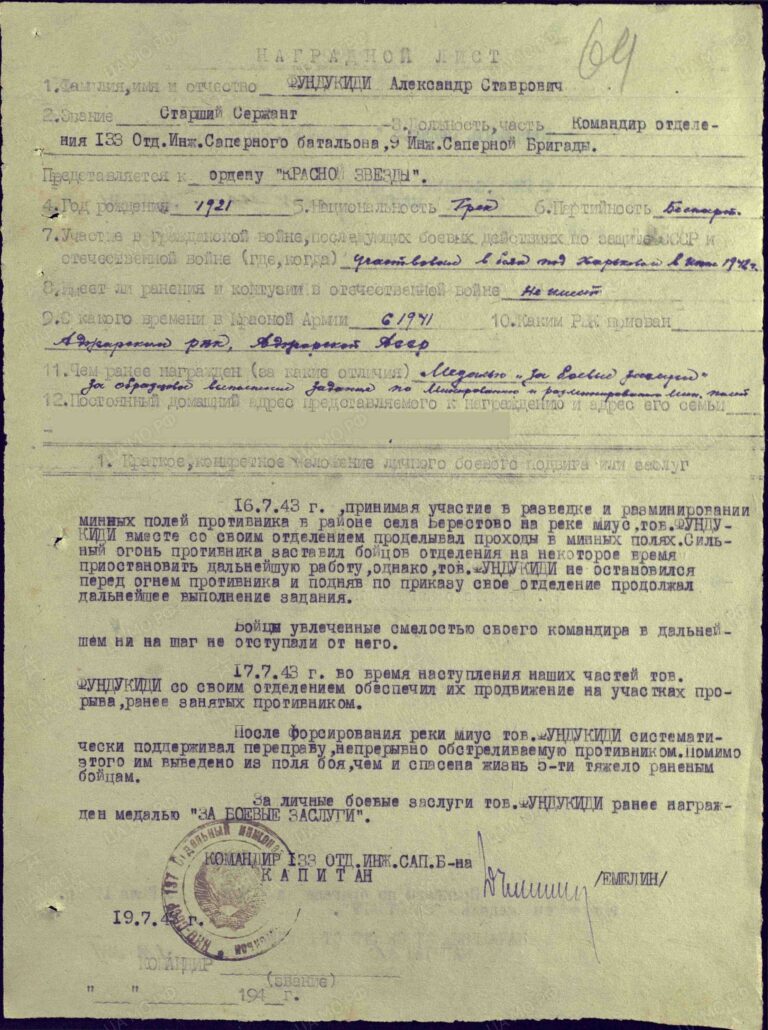 64
НАГРАДНОЙ ЛИСТ
1.Фамилия,имя и отчество ФУНДУКИДИ Александр Ставрович
2.Звание Старший Сержант 3.Должность,часть Командир отделе-
ния 133 Отд.Инж.Саперного батальона,9 Инж.Саперной Бригады.
Представляется к ордену "КРАСНОЙ ЗВЕЗДЫ".
4.Год рождения 1921 5.Национальность Грек 6.Партийность Беспарт.
7.Участие в гражданской войне,последующих боевых действиях по защите СССР и
отечественной войне (где,когда) участвовал в боях под Харьковом в 1942 г.
8.Имеет ли ранения и контузии в отечественной войне не имеет
9.С какого времени в Красной Армии с 1941 10.Каким РВК призван
Аджарским рвк, Аджарской АССР
11.Чем ранее награжден (за какие отличия) Медалью "За боевые заслуги"
за образцовое выполнение задания по минированию и разминированию мин. полей
12.Постоянный домашний адрес представляемого к награждению и адрес его семьи
1. Краткое,конкретное изложение личного боевого подвига или заслуг
16.7.43 г. ,принимая участие в разведке и разминировании
минных полей противника в районе села Берестово на реке миус,тов.ФУНДУ-
КИДИ вместе со своим отделением проделывал проходы в минных полях.Силь-
ный огонь противника заставил бойцов отделения на некоторое время
приостановить дальнейшую работу,однако,тов.ФУНДУКИДИ не остановился
перед огнем противника и подняв по приказу свое отделение продолжал
дальнейшее выполнение задания.
Бойцы увлеченные смелостью своего командира в дальней-
шем ни на шаг не отступали от него.
17.7.43 г. во время наступления наших частей тов.
ФУНДУКИДИ со своим отделением обеспечил их продвижение на участках про-
рыва,ранее занятых противником.
После форсирования реки миус тов.ФУНДУКИДИ системати-
чески поддерживал переправу,непрерывно обстреливаемую противником.Помимо
этого им выведено из поля боя,чем и спасена жизнь 5-ти тяжело раненым
бойцам.
За личные боевые заслуги тов.ФУНДУКИДИ ранее награж-
ден медалью "ЗА БОЕВЫЕ ЗАСЛУГИ".
КОМАНДИР 133 ОТД.ИНЖ.САП.Б-на
КАПИТАН /ЕМЕЛИН/
19.7.43 г.
КОМАНДИР
(звание)
" " 194 г.